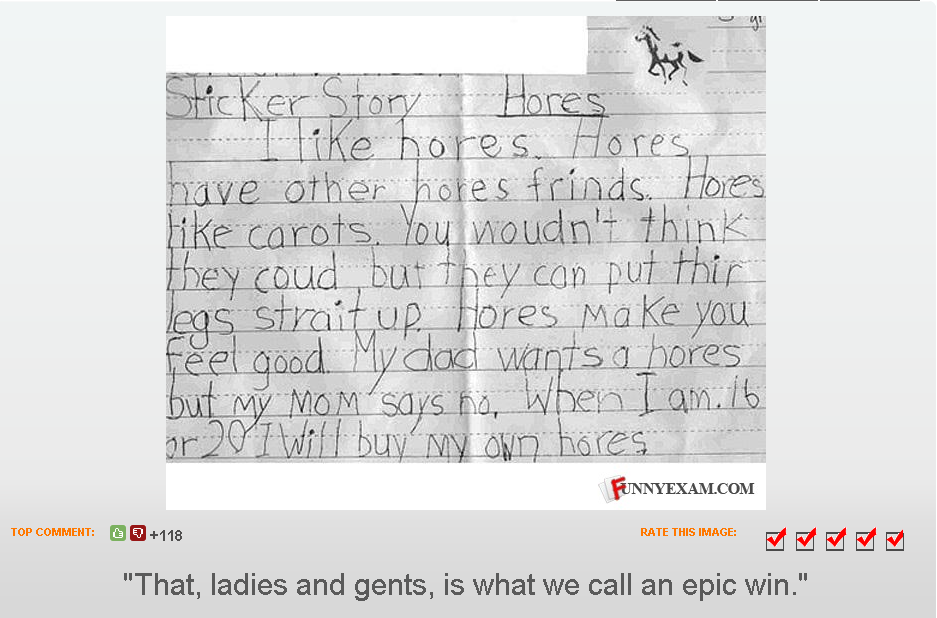 Sticker Story Hores
I like hores. Hores
have other hores frinds. Hores
like carots. You woudn't think
they coud but they can put thir
legs strait up. Hores make you
feel good. My dad wants a hores
but my mom says no. When I am 16
or 20 I will buy my own hores
FUNNYEXAM.COM
TOP COMMENT: +118 RATE THIS IMAGE:
"That, ladies and gents, is what we call an epic win."